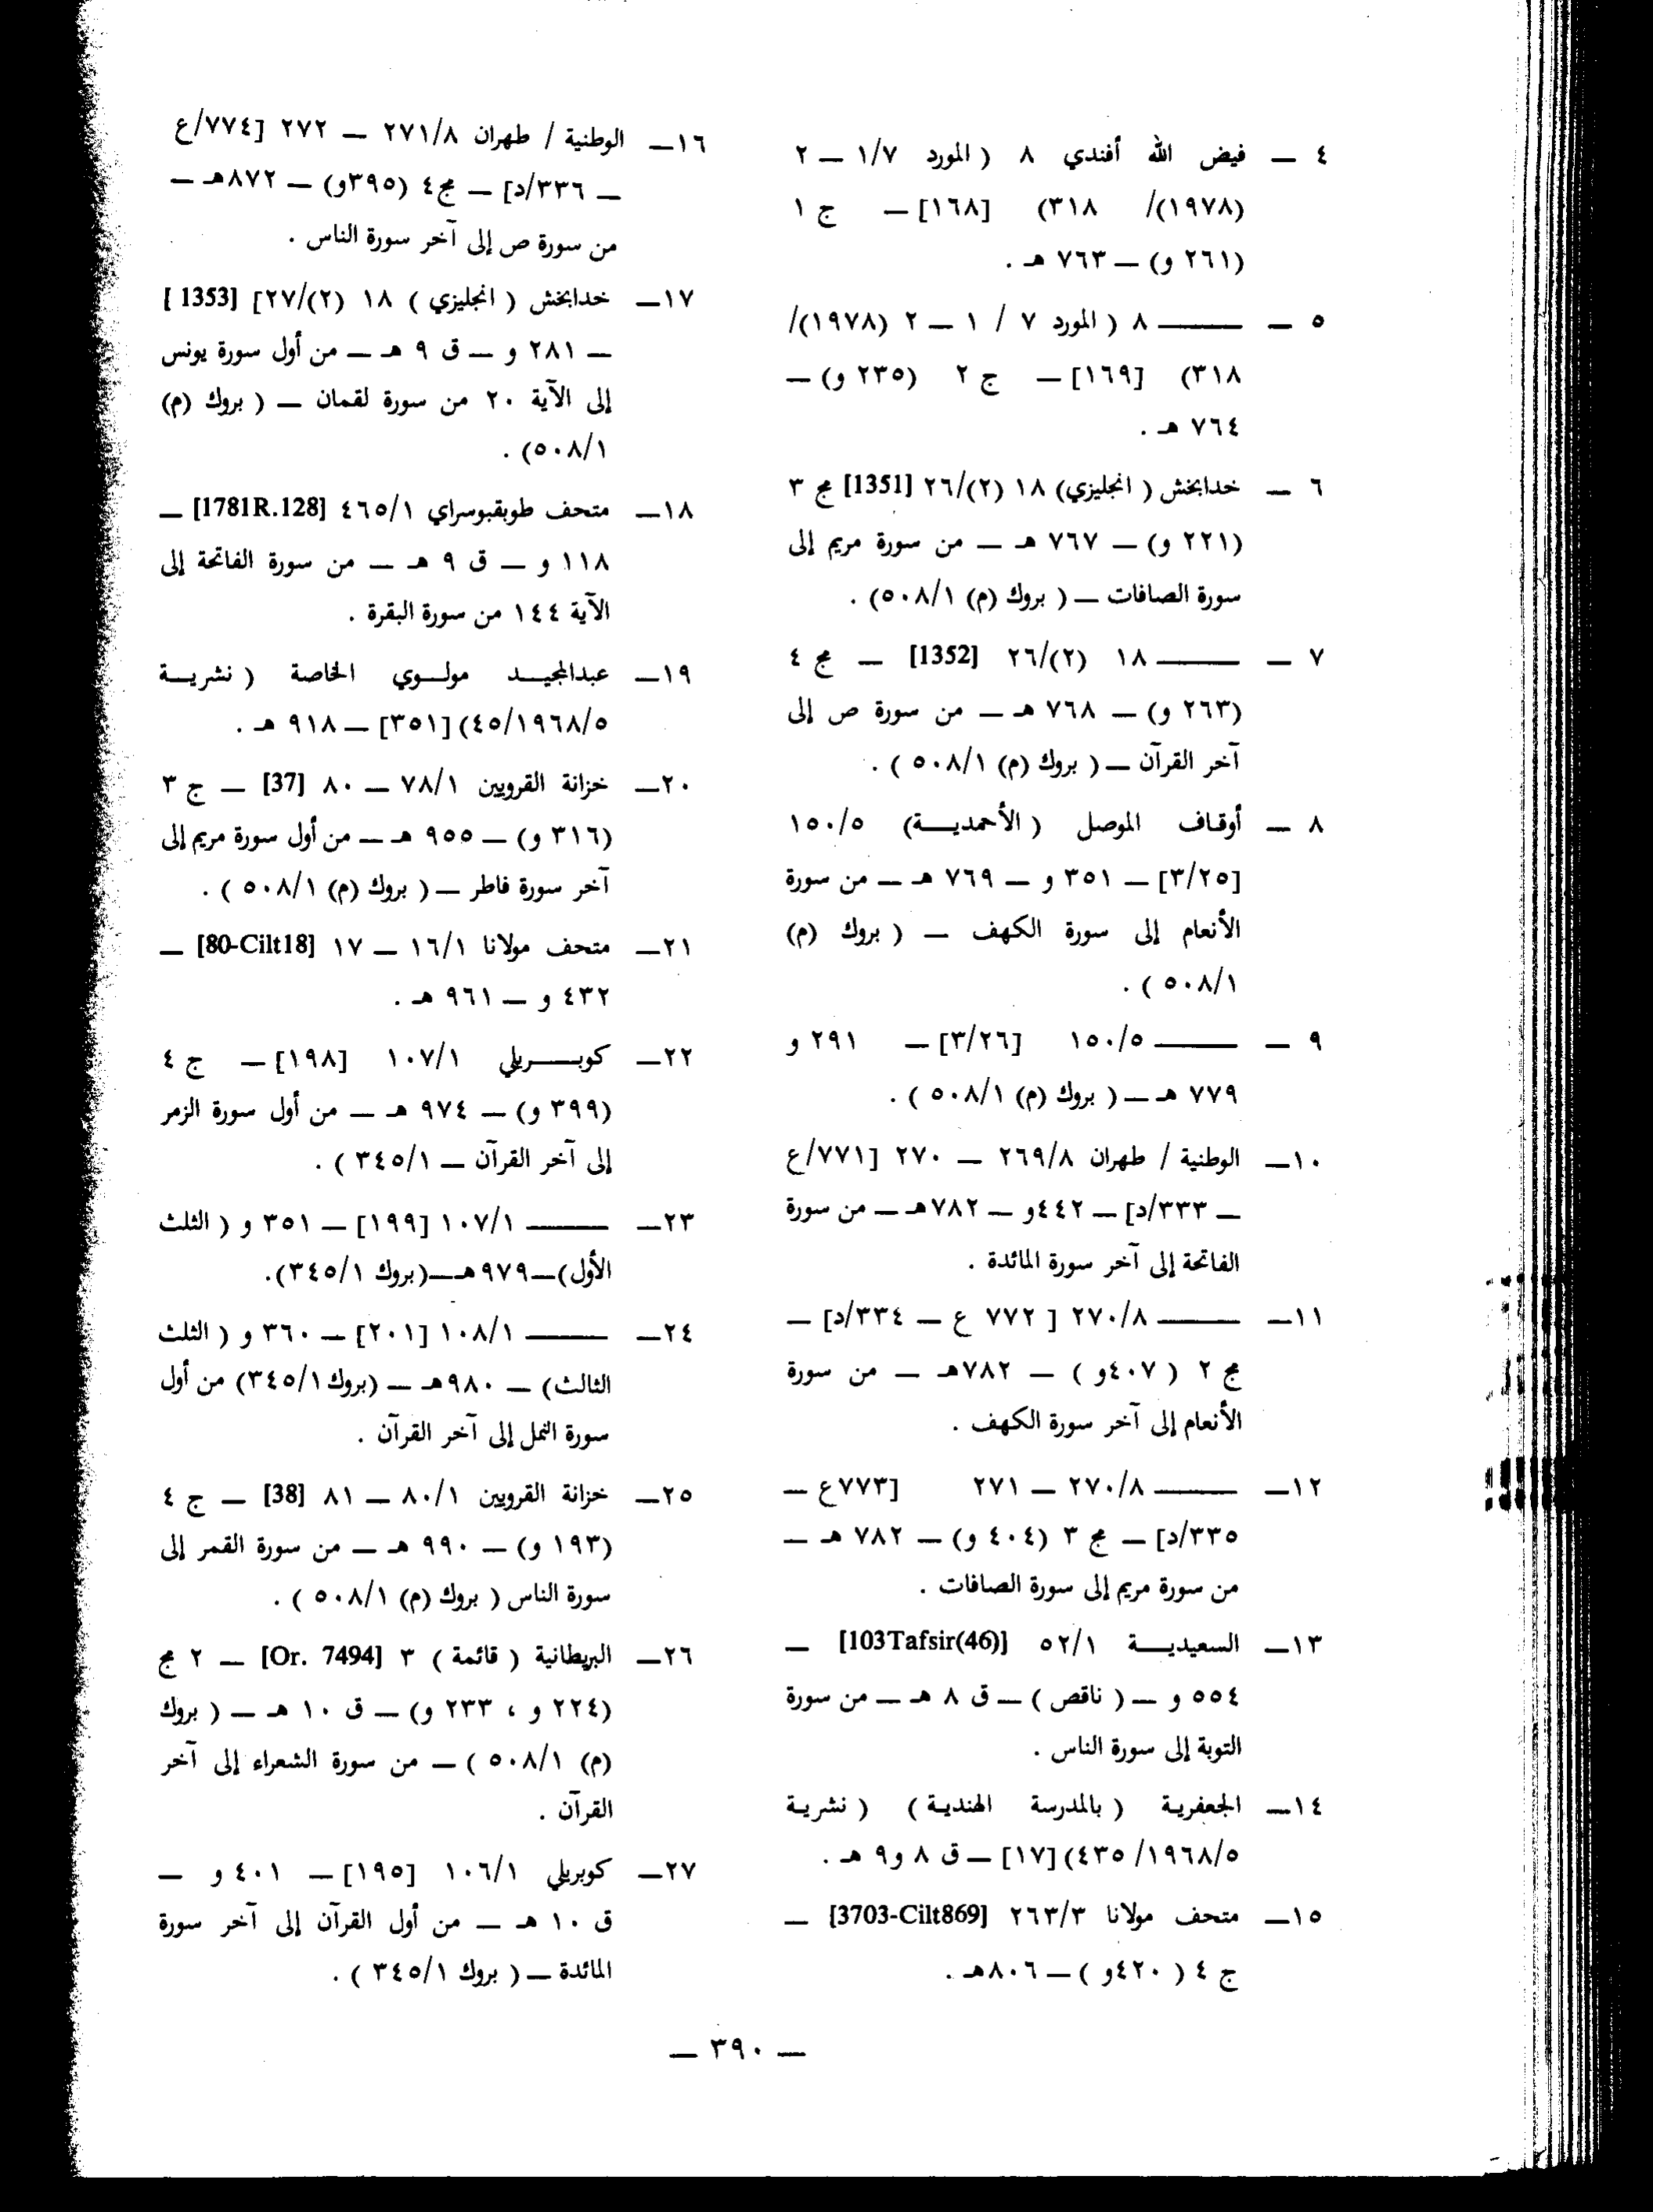 ٤ — فيض الله أفندي ٨ ( المورد ١/٧ — ٢
(١٩٧٨)/ ٣١٨) [١٦٨] — ج ١
(٢٦١ و) — ٧٦٣ هـ .
٥ — ——— ٨ ( المورد ٧ / ١ — ٢ (١٩٧٨)/
٣١٨) [١٦٩] — ج ٢ (٢٣٥ و) —
٧٦٤ هـ .
٦ — خدابخش ( انجليزي) ١٨ (٢)/٢٦ [1351] مج ٣
(٢٢١ و) — ٧٦٧ هـ — من سورة مريم إلى
سورة الصافات — ( بروك (م) ٥٠٨/١) .
٧ — ——— ١٨ (٢)/٢٦ [1352] — مج ٤
(٢٦٣ و) — ٧٦٨ هـ — من سورة ص إلى
آخر القرآن — ( بروك (م) ٥٠٨/١ ) .
٨ — أوقاف الموصل ( الأحمديـة) ١٥٠/٥
[٣/٢٥] — ٣٥١ و — ٧٦٩ هـ — من سورة
الأنعام إلى سورة الكهف — ( بروك (م)
٥٠٨/١ ) .
٩ — ——— ١٥٠/٥ [٣/٢٦] — ٢٩١ و
٧٧٩ هـ — ( بروك (م) ٥٠٨/١ ) .
١٠— الوطنية / طهران ٢٦٩/٨ — ٢٧٠ [٧٧١/ع
— ٣٣٣/د] — ٤٤٢و — ٧٨٢هـ — من سورة
الفاتحة إلى آخر سورة المائدة .
١١— ——— ٢٧٠/٨ [ ٧٧٢ ع — ٣٣٤/د] —
مج ٢ ( ٤٠٧و ) — ٧٨٢هـ — من سورة
الأنعام إلى آخر سورة الكهف .
١٢— ——— ٢٧٠/٨ — ٢٧١ [٧٧٣ع —
٣٣٥/د] — مج ٣ (٤٠٤ و) — ٧٨٢ هـ —
من سورة مريم إلى سورة الصافات .
١٣— السعيديـة ٥٢/١ [103Tafsir(46)] —
٥٥٤ و — ( ناقص ) — ق ٨ هـ — من سورة
التوبة إلى سورة الناس .
١٤— الجعفرية ( بالمدرسة الهندية ) ( نشرية
٤٣٥/١٩٦٨/٥) [١٧] — ق ٨ و٩ هـ .
١٥— متحف مولانا ٢٦٣/٣ [3703-Cilt869] —
ج ٤ ( ٤٢٠و ) — ٨٠٦هـ .
١٦— الوطنية / طهران ٢٧١/٨ — ٢٧٢ [٧٧٤/ع
— ٣٣٦/د] — مج٤ (٣٩٥و) — ٨٧٢هـ —
من سورة ص إلى آخر سورة الناس .
١٧— خدابخش ( انجليزي ) ١٨ (٢)/٢٧] [1353 ]
— ٢٨١ و — ق ٩ هـ — من أول سورة يونس
إلى الآية ٢٠ من سورة لقمان — ( بروك (م)
٥٠٨/١) .
١٨— متحف طوبقبوسراي ٤٦٥/١ [1781R.128] —
١١٨ و — ق ٩ هـ — من سورة الفاتحة إلى
الآية ١٤٤ من سورة البقرة .
١٩— عبدالمجيـد مولـوي الخاصة ( نشريـة
٤٥/١٩٦٨/٥) [٣٥١] — ٩١٨ هـ .
٢٠— خزانة القرويين ٧٨/١ — ٨٠ [37] — ج ٣
(٣١٦ و) — ٩٥٥ هـ — من أول سورة مريم إلى
آخر سورة فاطر — ( بروك (م) ٥٠٨/١ ) .
٢١— متحف مولانا ١٦/١ — ١٧ [80-Cilt18] —
٤٣٢ و — ٩٦١ هـ .
٢٢— كوبـريلي ١٠٧/١ [١٩٨] — ج ٤
(٣٩٩ و) — ٩٧٤ هـ — من أول سورة الزمر
إلى آخر القرآن — ٣٤٥/١ ) .
٢٣— ——— ١٠٧/١ [١٩٩] — ٣٥١ و ( الثلث
الأول) — ٩٧٩هـ — (بروك ٣٤٥/١).
٢٤— ——— ١٠٨/١ [٢٠١] — ٣٦٠ و ( الثلث
الثالث) — ٩٨٠هـ — (بروك ٣٤٥/١) من أول
سورة النمل إلى آخر القرآن .
٢٥— خزانة القرويين ٨٠/١ — ٨١ [38] — ج ٤
(١٩٣ و) — ٩٩٠ هـ — من سورة القمر إلى
سورة الناس ( بروك (م) ٥٠٨/١ ) .
٢٦— البريطانية ( قائمة ) ٣ [Or. 7494] — ٢ مج
(٢٢٤ و ، ٢٣٣ و) — ق ١٠ هـ — ( بروك
(م) ٥٠٨/١ ) — من سورة الشعراء إلى آخر
القرآن .
٢٧— كوبريلي ١٠٦/١ [١٩٥] — ٤٠١ و —
ق ١٠ هـ — من أول القرآن إلى آخر سورة
المائدة — ( بروك ٣٤٥/١ ) .
— ٣٩٠ —